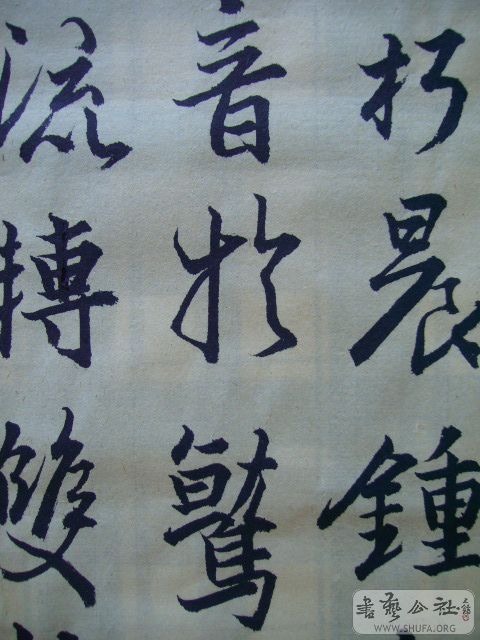 朽晨鍾
音於鷲
流轉雙
書藝公社
WWW.SHUFA.ORG